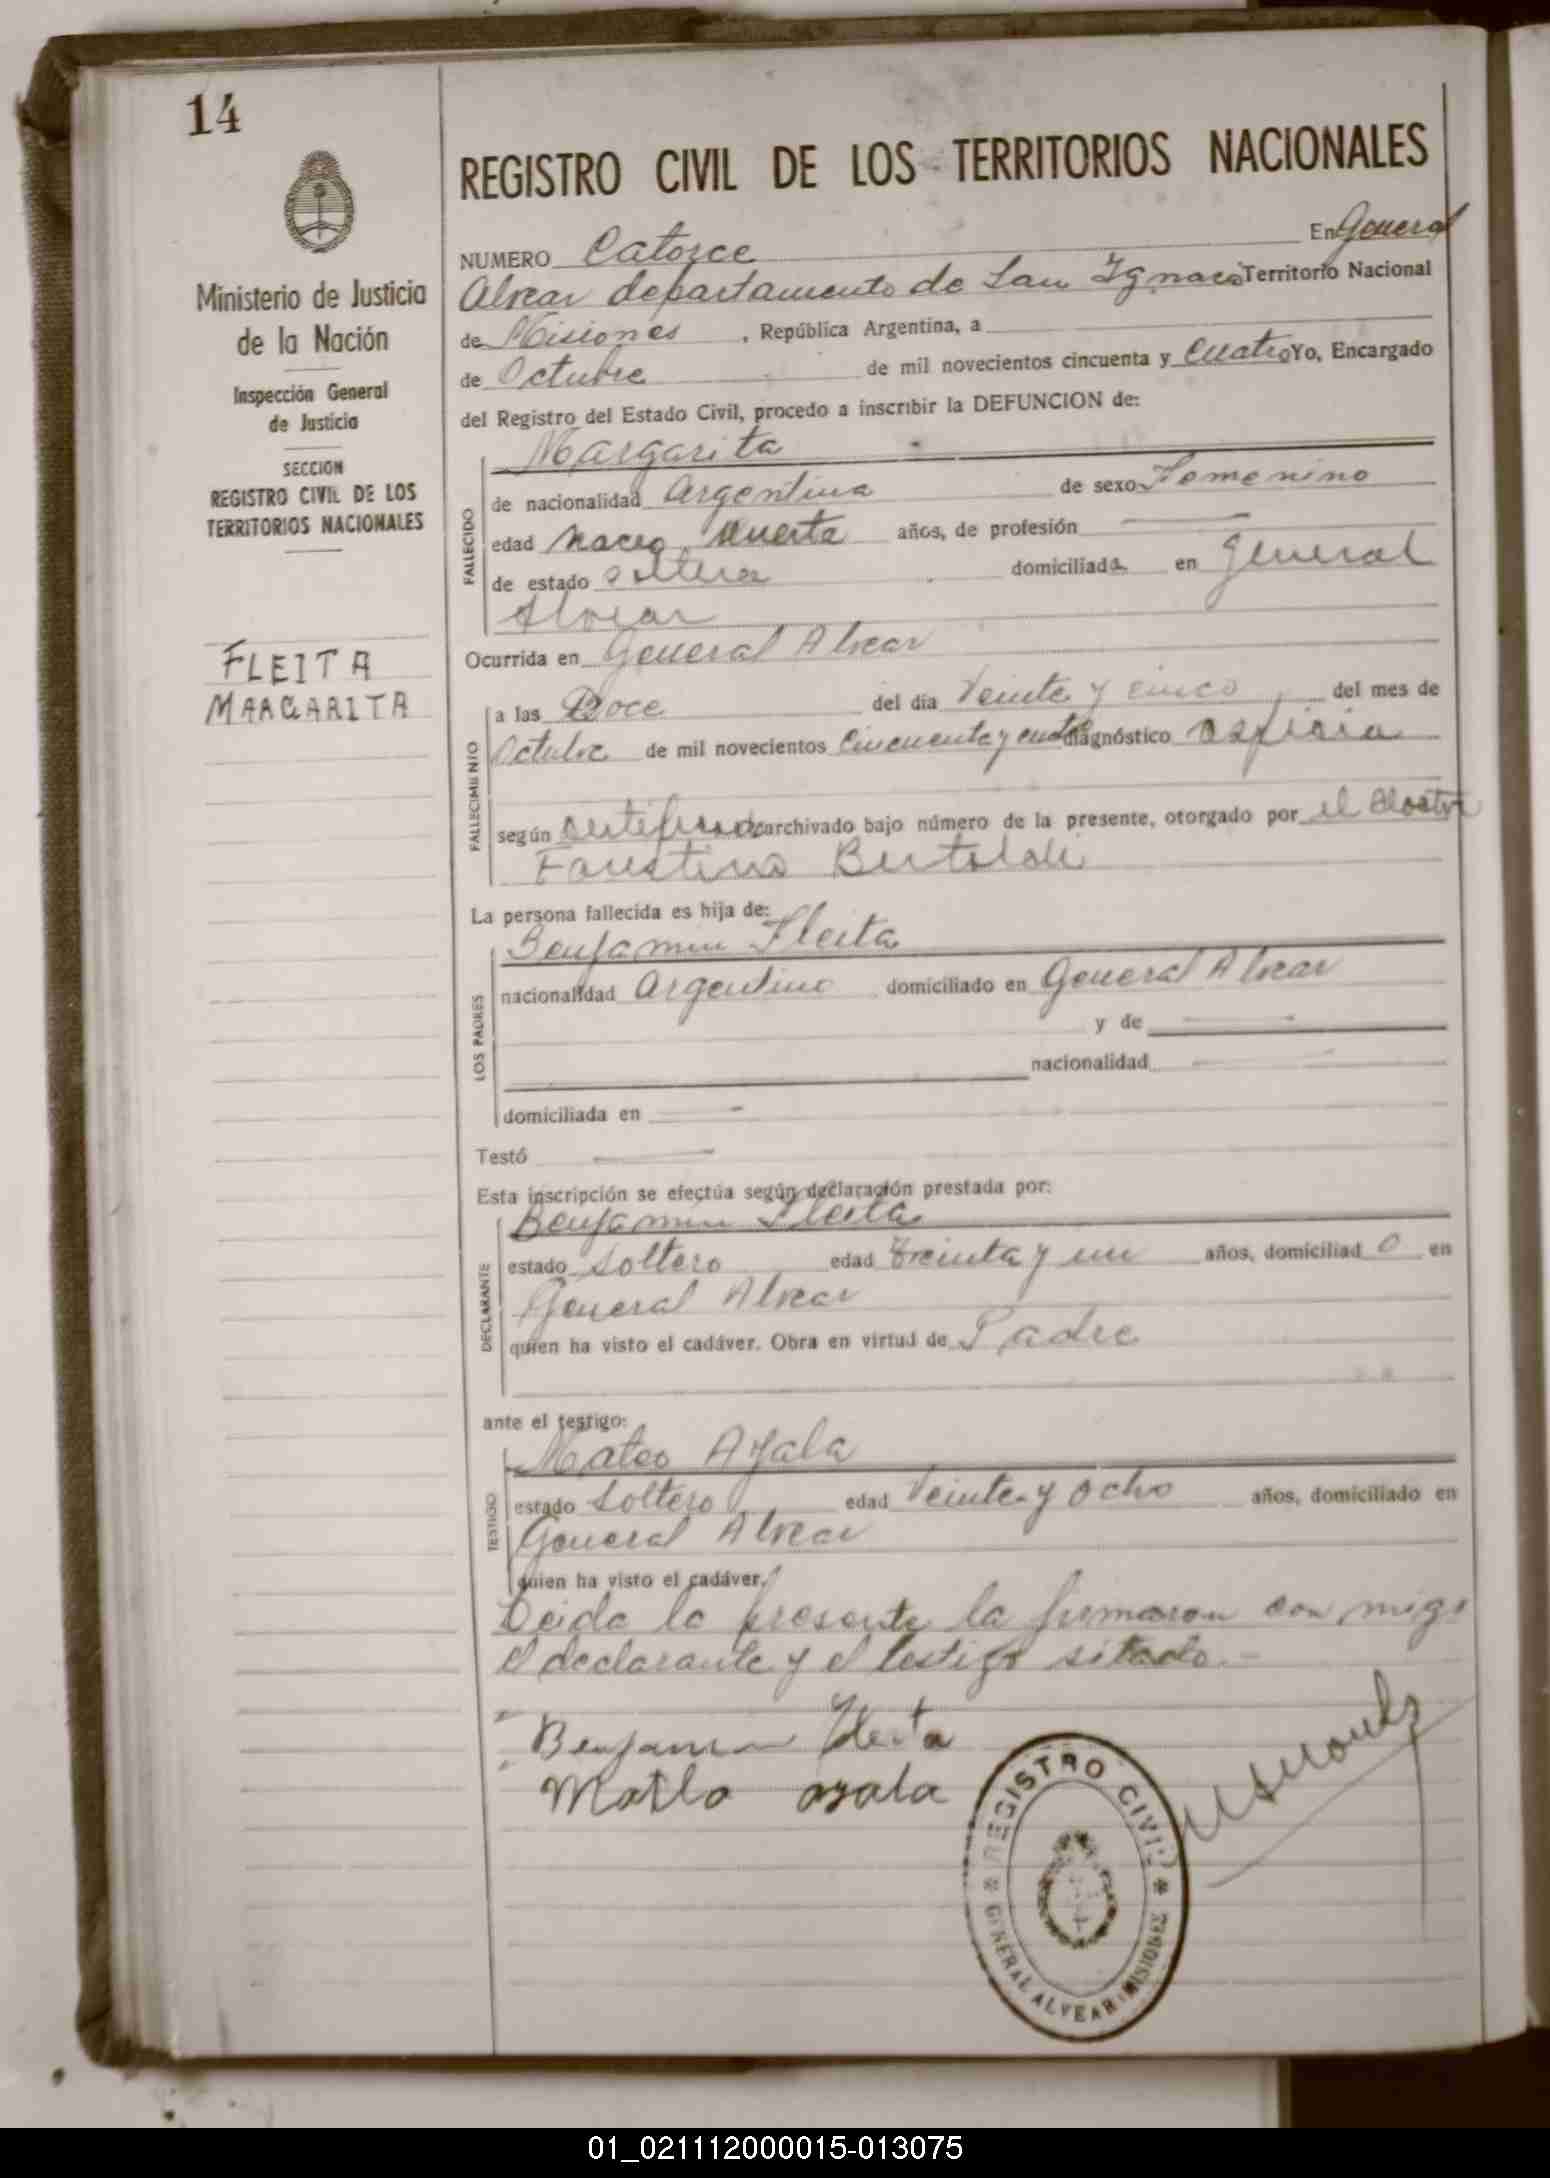 14
REGISTRO CIVIL DE LOS TERRITORIOS NACIONALES
Ministerio de Justicia
de la Nación
Inspección General
de Justicia
SECCION
REGISTRO CIVIL DE LOS
TERRITORIOS NACIONALES
FLEITA
MARGARITA
NUMERO Catorce En General
Alvear departamento de San Ignacio Territorio Nacional
de Misiones , República Argentina, a
de Octubre de mil novecientos cincuenta y Cuatro Yo, Encargado
del Registro del Estado Civil, procedo a inscribir la DEFUNCION de:
FALLECIDO
Margarita
de nacionalidad Argentina de sexo Femenino
edad nacio muerta años, de profesión
de estado soltera domiciliada en General
Alvear
Ocurrida en General Alvear
FALLECIMIENTO
a las Doce del día Veinte y cinco del mes de
Octubre de mil novecientos Cincuenta y cuatro diagnóstico asficia
según certificado archivado bajo número de la presente, otorgado por el Doctor
Faustino Bertoldi
La persona fallecida es hija de:
LOS PADRES
Benjamin Fleita
nacionalidad Argentino domiciliado en General Alvear
y de
nacionalidad
domiciliada en
Testó
Esta inscripción se efectúa según declaración prestada por:
DECLARANTE
Benjamin Fleita
estado Soltero edad Treinta y un años, domiciliad o en
General Alvear
quien ha visto el cadáver. Obra en virtud de Padre
ante el testigo:
TESTIGO
Mateo Ayala
estado Soltero edad Veinte y ocho años, domiciliado en
General Alvear
quien ha visto el cadáver.
Leida la presente la firmaron con migo
el declarante y el testigo sitado.-
Benjamin Fleita
Matlo ayala
REGISTRO CIVIL
GENERAL ALVEAR (MISIONES)
01_021112000015-013075